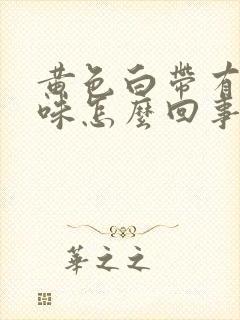 黄色白帶有
味怎麼回事
華之之